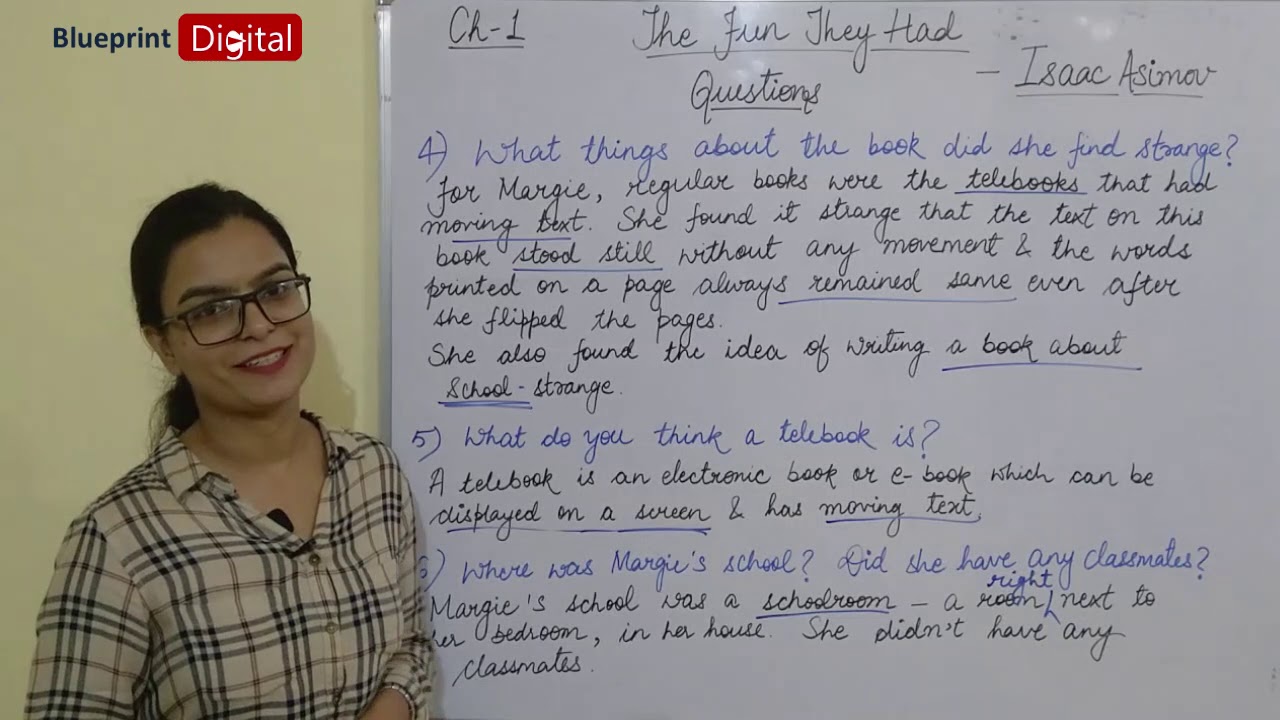 Blueprint Digital
Ch-1 The Fun They Had
- Isaac Asimov
Questions
4) What things about the book did she find strange?
For Margie, regular books were the telebooks that had
moving text. She found it strange that the text on this
book stood still without any movement & the words
printed on a page always remained same even after
she flipped the pages.
She also found the idea of writing a book about
School - strange.
5) What do you think a telebook is?
A telebook is an electronic book or e-book which can be
displayed on a screen & has moving text.
6) Where was Margie's school? Did she have any classmates?
right
Margie's school was a schoolroom – a room next to
her bedroom, in her house. She didn't have any
classmates.